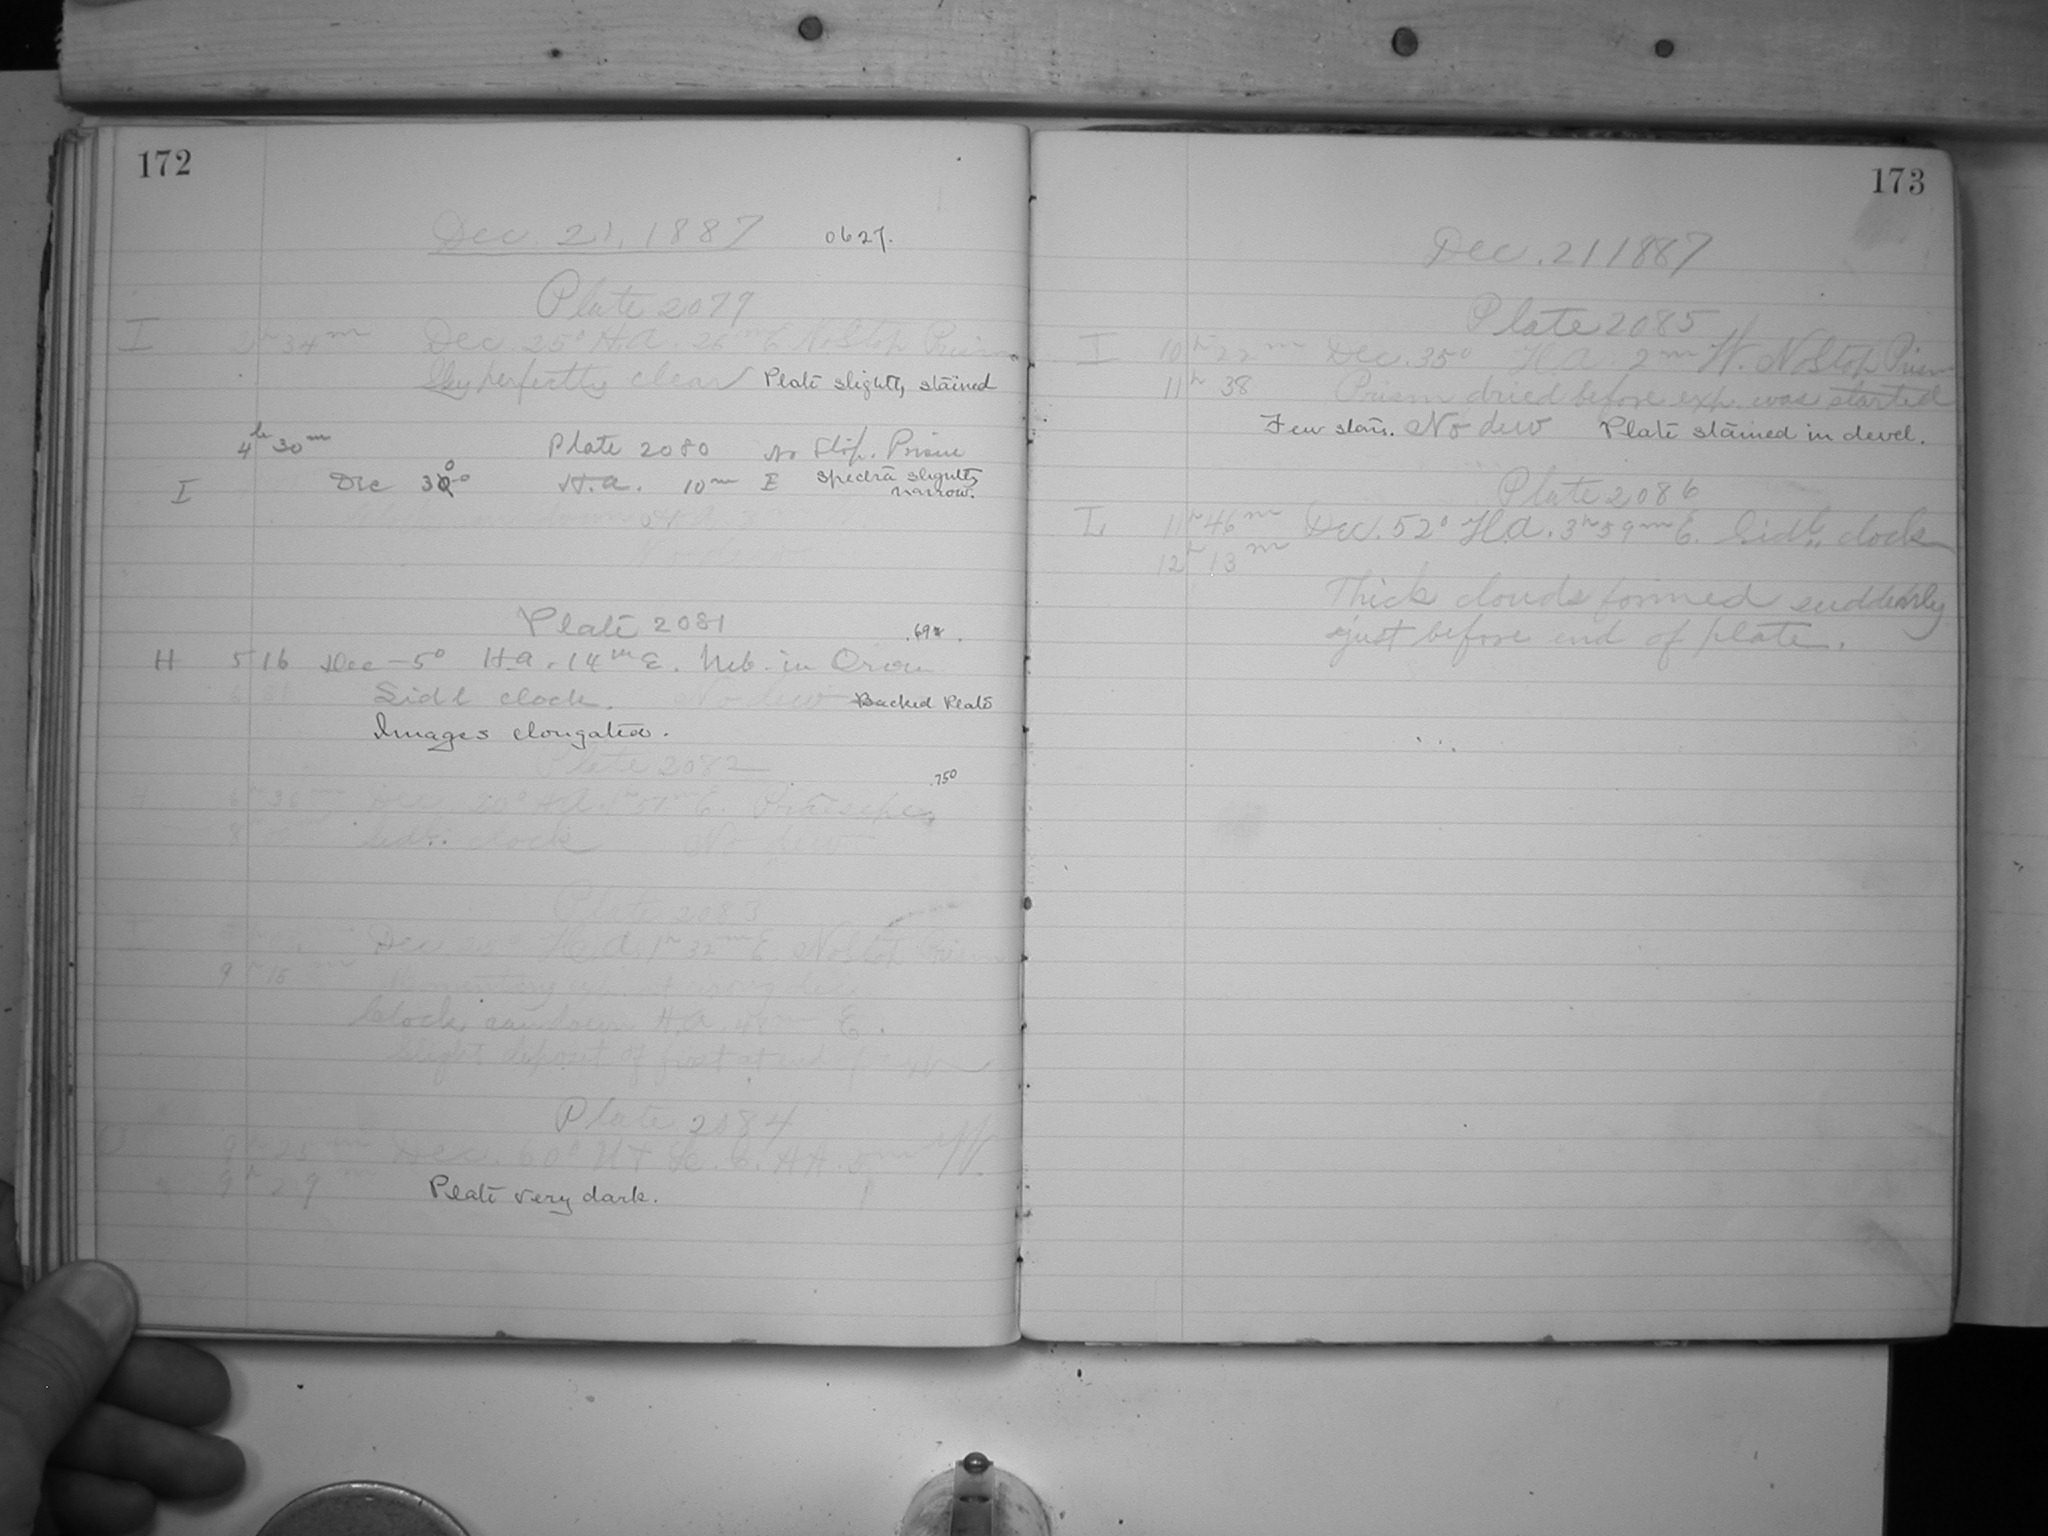 172
Dec. 21, 1887 0627.
Plate 2079
I 2h 34m Dec. 25° H.A. 26m E. No Stop Prism
Sky perfectly clear Plate slightly stained
4h 30m Plate 2080 no Stop. Prism
I Dec 30° H.A. 10m E spectra slightly
narrow.
Plate 2081 .698.
H 5 16 Dec -5° H.A. 14m E. Neb. in Orion
Sidl clock. No dew Backed Plate
Images elongated.
Plate 2082 .750
6h 36m Dec. 20° H.A. E. Praesepe
8h Sidl. clock No dew
Plate 2083
Dec H.A. 1h 32m E. No Stop Prism
9h 15m
Clock ran down H.A. E.
Slight deposit of frost at end of exp
Plate 2084
9h 25m Dec. 60°
9h 29m Plate very dark.
173
Dec. 21 1887
Plate 2085
I 10h 22m Dec. 35° H.A. 2m W. No Stop Prism
11h 38 Prism dried before exp. was started
Few stars. No dew Plate stained in devel.
Plate 2086
I 11h 46m Dec. 52° H.A. 3h 59m E. Sidl. clock
12h 13m
Thick clouds formed suddenly
just before end of plate.